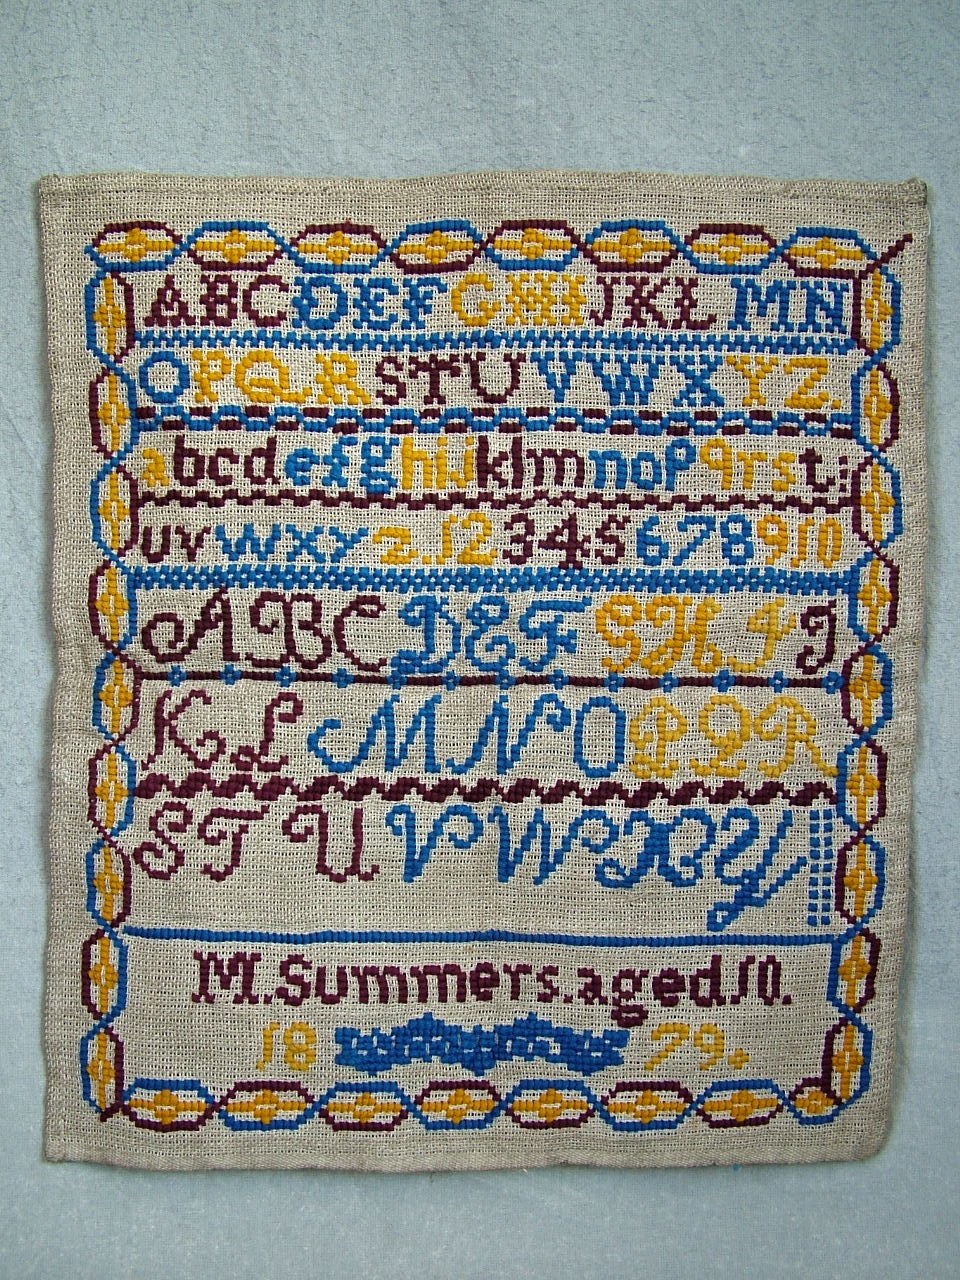 ABCDEFGHIJKLMN
OPQRSTUVWXYZ.
abcdefghijklmnopqrst
uvwxyz.12345678910
ABCDEFGHIJ
KLMNOPQR
STUVWXY
M.Summers.aged10.
18 79.